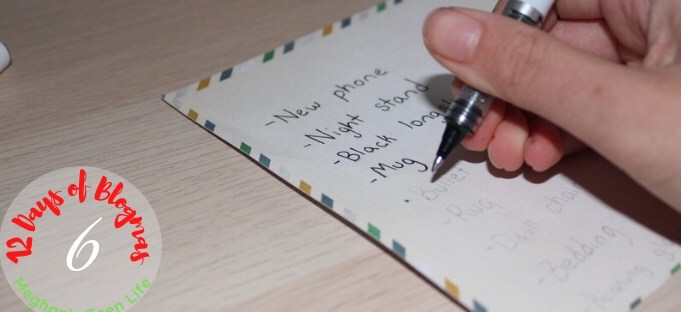 -New phone
-Night stand
-Black
-Mug
Bullet
-Rug
-Desk
-Bedding
12 Days of Blogmas
6
Meghan's Teen Life